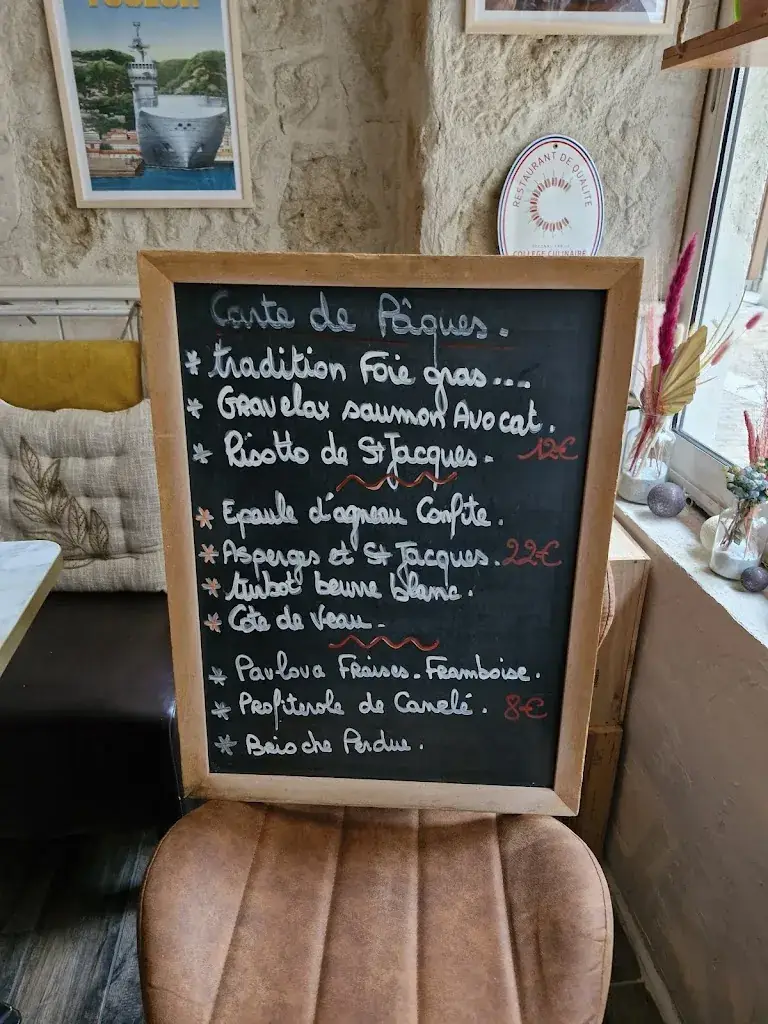 TOULON
RESTAURANT DE QUALITÉ
COLLÈGE CULINAIRE
Carte de Pâques.
* tradition Foie gras...
* Gravelax saumon Avocat.
* Risotto de St Jacques. 12€
* Epaule d'agneau Confite.
* Asperges et St Jacques. 22€
* turbot beurre blanc.
* Cote de veau.
* Pavlova Fraises. Framboise.
* Profiterole de Canelé. 8€
* Brioche Perdue.